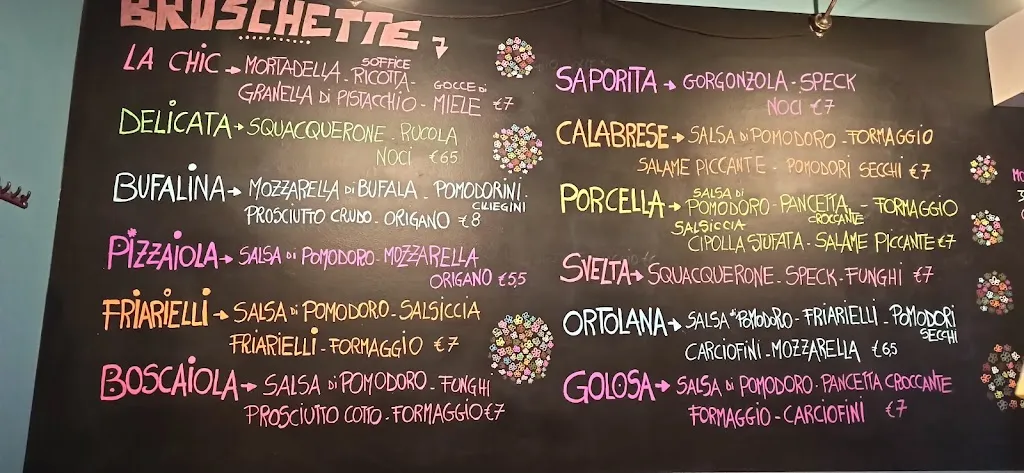 BRUSCHETTE
LA CHIC → MORTADELLA - SOFFICE RICOTTA - GOCCE DI
GRANELLA DI PISTACCHIO - MIELE €7
DELICATA → SQUACQUERONE - RUCOLA
NOCI €65
BUFALINA → MOZZARELLA DI BUFALA - POMODORINI
CILIEGINI
PROSCIUTTO CRUDO - ORIGANO €8
PIZZAIOLA → SALSA DI POMODORO - MOZZARELLA
ORIGANO €5,5
FRIARIELLI → SALSA DI POMODORO - SALSICCIA
FRIARIELLI - FORMAGGIO €7
BOSCAIOLA → SALSA DI POMODORO - FUNGHI
PROSCIUTTO COTTO - FORMAGGIO €7
SAPORITA → GORGONZOLA - SPECK
NOCI €7
CALABRESE → SALSA DI POMODORO - FORMAGGIO
SALAME PICCANTE - POMODORI SECCHI €7
PORCELLA → SALSA DI POMODORO - PANCETTA CROCCANTE - FORMAGGIO
SALSICCIA
CIPOLLA STUFATA - SALAME PICCANTE €7
SVELTA → SQUACQUERONE - SPECK - FUNGHI €7
ORTOLANA → SALSA DI POMODORO - FRIARIELLI - POMODORI
SECCHI
CARCIOFINI - MOZZARELLA €65
GOLOSA → SALSA DI POMODORO - PANCETTA CROCCANTE
FORMAGGIO - CARCIOFINI €7